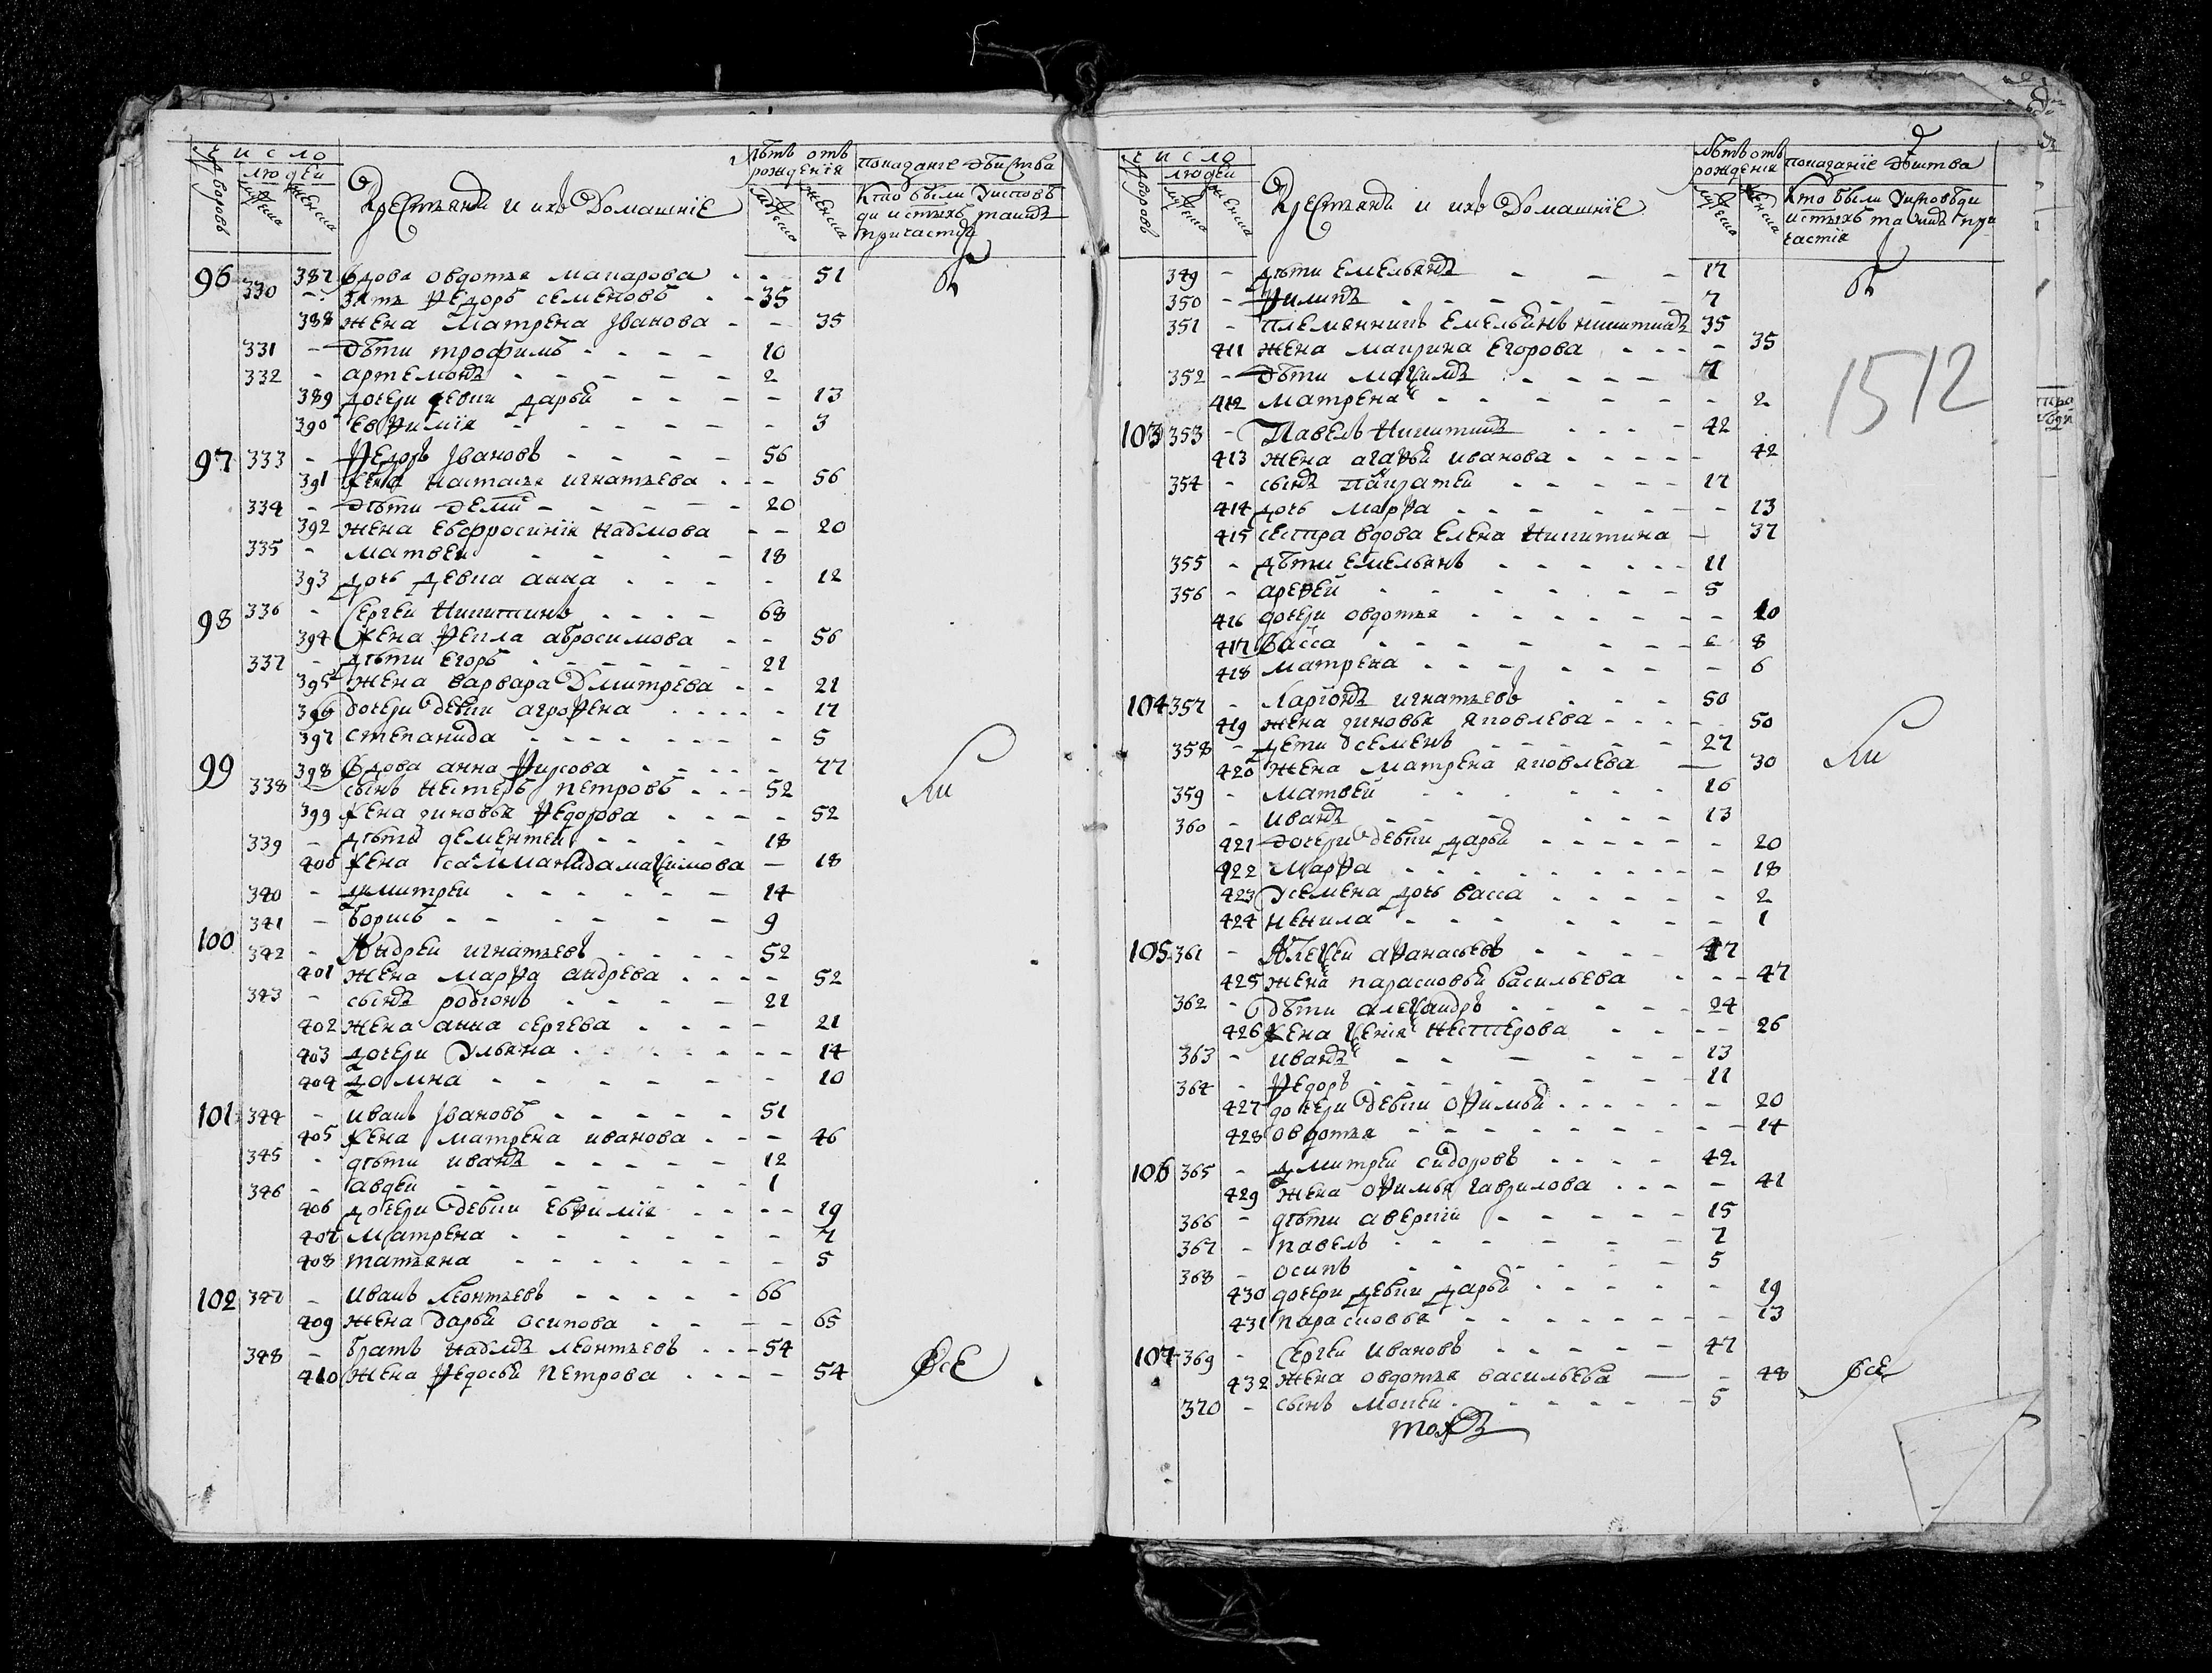 число
людей
дворовъ
мужеска
женска
Крестьянѣ и ихъ Домашніе
лѣтъ отъ рожденія
мужеска
женска
показаніе дѣиства
Кто были уисповѣ
ди и стыхъ таинъ
причастія
96 387 Вдова овдотья макарова - - 51 б
330 - Зять Ѳедоръ семеновъ - - 35
388 жена Матрена Іванова - - 35
331 - Дѣти трофимъ - - - - 10
332 - артемонъ - - - - - 2
389 дочери девки дарья - - - - 13
390 евѲимія - - - - - - 3
97 333 - Ѳедоръ Івановъ - - - - - 56
391 жена наталья игнатьева - - - 56
334 - дѣти деми - - - - - 20
392 жена евфросинія наѳмова - - 20
335 - матвеи - - - - - 18
393 дочь девка анна - - - - - 12
98 336 - Сергеи Никитинъ - - - - 68
394 жена Ѳекла абросимова - - 56
337 - дѣти егоръ - - - - - - 21
395 жена варвара Дмитрева - - 21
396 дочери девки агроѲена - - - - 17
397 степанида - - - - - - - - 5
99 398 Вдова анна Ѳирсова - - - - - 77
338 - сынъ нестеръ петровъ - - - 52 ли
399 жена зиновья Ѳедорова - - - - - 52
339 - дѣти дементеи - - - - - 18
400 жена саламанида максимова - 18
340 - дмитреи - - - - - - 14
341 - борисъ - - - - - - 9
100 342 - Андреи игнатьевъ - - - - 52
401 жена марѲа андрева - - - - 52
343 - сынъ родіонъ - - - - - 21
402 жена анна сергева - - - - 21
403 дочери Ульяна - - - - - - - 14
404 домна - - - - - - 10
101 344 - иванъ Івановъ - - - - - 51
405 жена матрена иванова - - - 46
345 - дѣти иванъ - - - - - 12
346 - авдеи - - - - - - - 1
406 дочери девки евѲимія - - - - 19
407 Матрена - - - - - - - 7
408 татьяна - - - - - - - 5
102 347 - иванъ Леонтьевъ - - - - - 66
409 жена дарья осипова - - - - 65
348 - братъ наѳмъ леонтьевъ - - - 54
410 жена Ѳедосья петрова - - - - 54 Все
число
людей
дворовъ
мужеска
женска
Крестьянѣ и ихъ Домашніе
лѣтъ отъ рожденія
мужеска
женска
показаніе дѣиства
Кто были уисповѣди
и стыхъ таинъ при
частія
349 - дѣти емельянъ - - - 17 б
350 - Ѳилипъ - - - - - - 7
351 - племянникъ емельянъ никитинъ 35
411 жена маирина егорова - - - - 35
1512
352 - дѣти максимъ - - - - - 7
412 матрена - - - - - - - 2
103 353 - Павелъ Никитинъ - - - - 42
413 жена агаѲья иванова - - - - - 42
354 - сынъ панкратеи - - - - - 17
414 дочь марѲа - - - - - - - 13
415 сестра вдова елена никитина - 37
355 - дѣти емельянъ - - - - - - 11
356 - ареѲеи - - - - - - - 5
416 дочери овдотья - - - - - - - 10
417 васса - - - - - - - - 8
418 матрена - - - - - - - - 6
104 357 - Ларіонъ игнатьевъ - - - - 50
419 жена зиновья яковлева - - - - - 50
358 - дети семенъ - - - - - - 27
420 жена матрена яковлева - 30 ли
359 - матвеи - - - - - - 16
360 - иванъ - - - - - - 13
421 дочери девки дарья - - - - - - 20
422 марѲа - - - - - - - - - - 18
423 Усемена дочь васса - - - - - - 2
424 ненила - - - - - - - - 1
105 361 - Алексеи аѲанасьевъ - - - - 47
425 жена парасковья васильева - - - 47
362 - дѣти александръ - - - - - 24
426 жена ксенія нестерова - - - - 26
363 - иванъ - - - - - - - 13
364 - Ѳедоръ - - - - - - - - 11
427 дочери девки оѲимья - - - - - - 20
428 овдотья - - - - - - - - - 14
106 365 - дмитреи сидоровъ - - - - 42
429 жена оѲимья гаврилова - - - - 41
366 - дѣти аверкіи - - - - - 15
367 - павелъ - - - - - - - 7
368 - осипъ - - - - - - - 5
430 дочери девки дарья - - - - - - 19
431 парасковья - - - - - - - - 13
107 369 - Сергеи ивановъ - - - - - 47
432 жена овдотья васильева - - 48 Все
370 - сынъ мокеи - - - - - - 5